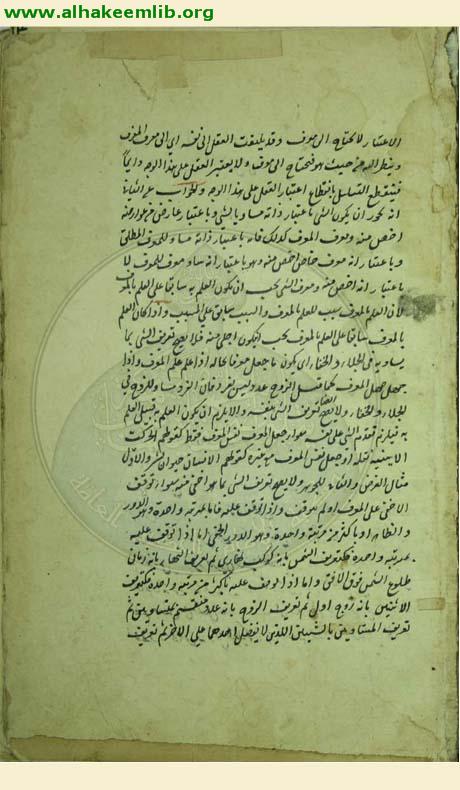 www.alhakeemlib.org
الاعتبار لا يحتاج الى معرف وقد يلتفت العقل الى نفسه اى الى معرف المعرف
وينظر اليه من حيث هو فيحتاج الى معرف ولا يعتبر العقل على هذا الوجه دايماً
فينقطع التسلسل بانقطاع اعتبار العقل على هذا الوجه والجواب عن الثانى
انه يجوز ان يكون الشى باعتبار ذاته مساويا لشى وباعتبار عارض من عوارضه
اخص منه ومعرف المعرف كذلك فانه باعتبار ذاته مساو للمعرف المطلق
وباعتبار انه معرف خاص اخص منه وهو باعتبار انه مساو معرف للمعرف لا
باعتبار انه اخص منه ومعرف الشى يجب ان يكون العلم به سابقا على العلم بالمعرف
لان العلم بالمعرف سبب للعلم بالمعرف والسبب سابق على المسبب واذا كان العلم
بالمعرف سابقا على العلم بالمعرف يجب ان يكون اجلى منه فلا يصح تعريف الشى بما
يساويه فى الجلاء والخفاء اى يكون ما جعل معرفا بحاله اذا علم علم المعرف واذا
جهل جهل المعرف كما قيل الزوج عدد ليس بفرد فان الفرد مساو للزوج فى
الجلاء والخفاء ولا يصح ايضا تعريف الشى بنفسه والا يلزم ان يكون العلم به قبل العلم
به فيلزم تقدم الشى على نفسه سواء جعل المعرف نفس المعرف فقط كقولهم الحركة
نقلة او جعل نفس المعرف مع غيره كقولهم الانسان حيوان بشر والاول
مثال العرض والثانى للجوهر ولا يصح تعريف الشى بما هو اخفى منه سواء توقف
الاخفى على المعرف او لم يتوقف واذا توقف عليه فاما بمرتبة واحدة وهو الدور
الظاهر او باكثر من مرتبة واحدة وهو الدور الخفى اما اذا توقف عليه
بمرتبة واحدة فكتعريف الشمس بانه كوكب نهارى ثم تعريف النهار بانه زمان
طلوع الشمس فوق الافق واما اذا توقف عليه باكثر من مرتبة واحدة فكتعريف
الاثنين بانه زوج اول ثم تعريف الزوج بانه عدد منقسم بمتساويين ثم
تعريف المتساويين بالشيئين اللذين لا يفضل احدهما على الاخر ثم تعريف